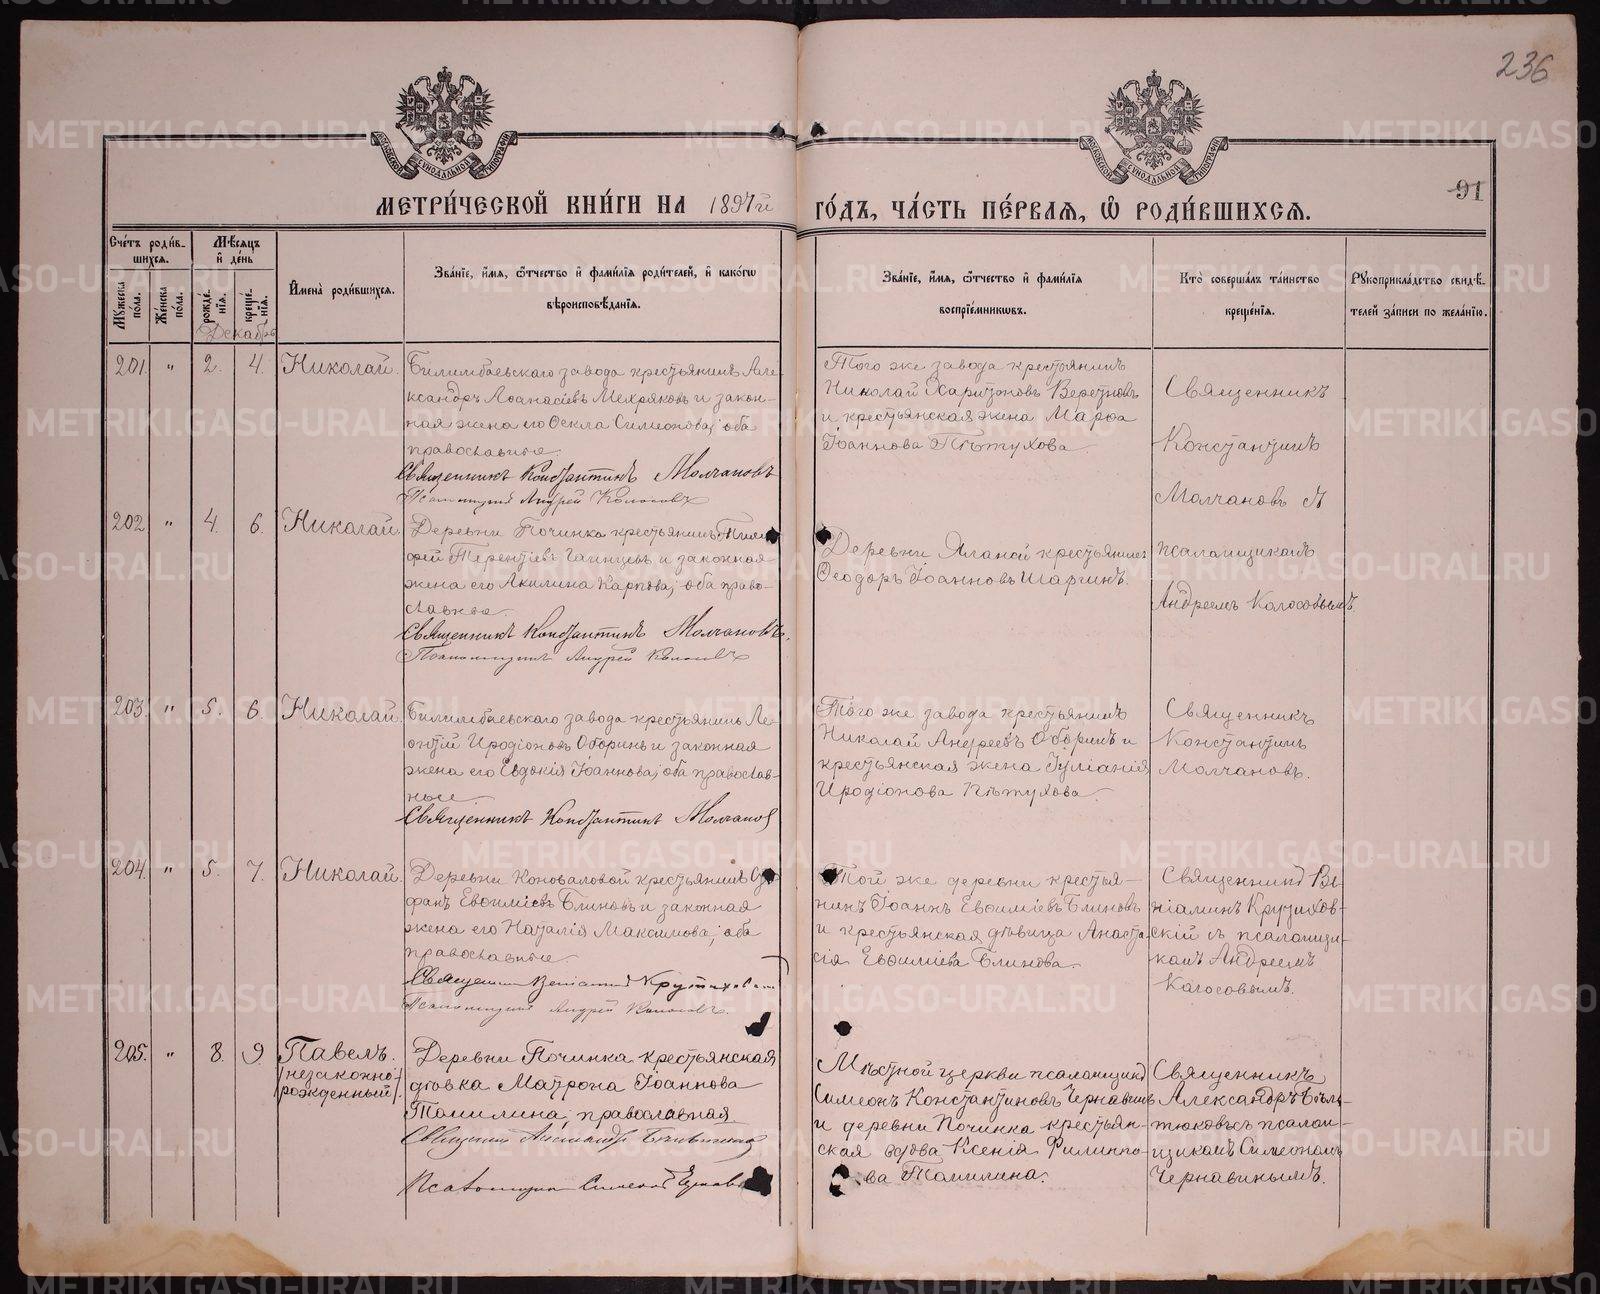 236
МОСКОВСКОЙ СѴНОДАЛЬНОЙ ТИПОГРАФІИ
МОСКОВСКОЙ СѴНОДАЛЬНОЙ ТИПОГРАФІИ
МЕТРИ́ЧЕСКОЙ КНИ́ГИ НА 1897й ГО́ДЪ, ЧА́СТЬ ПЕ́РВАЯ, Ѽ РОДИ́ВШИХСЯ.
91
Сче́тъ роди́в-
шихся.
Мꙋжеска
по́ла.
Же́нска
по́ла.
Мѣ́сяцъ
и҆ де́нь
рожде́-
нїя.
креще́-
нїя.
Декабрь
И҆мена̀ роди́вшихся.
Зва́нїе, и҆́мя, ѻ҆́тчество и҆ фами́лїя роди́телей, и҆ како́гѡ
вѣроисповѣ́данїя.
Зва́нїе, и҆́мя, ѻ҆́тчество и҆ фами́лїя
воспрїе́мникѡвъ.
Кто̀ соверша́лъ та́инство
креще́нїя.
Рꙋкоприкла́дство свидѣ́-
телей за́писи по жела́нїю.
201. " 2. 4. Николай.
Билимбаевскаго завода крестьянинъ Але-
ксандръ Аѳанасіевъ Мехряковъ и закон-
ная жена его Ѳекла Симеонова; оба
православные.
Священникъ Константинъ Молчановъ
Псаломщикъ Андрей Колосовъ
Того же завода крестьянинъ
Николай Харитоновъ
и крестьянская жена Марѳа
Іоаннова Пѣтухова.
Священникъ
Константинъ
Молчановъ съ
псаломщикомъ
Андреемъ Колосовымъ.
202. " 4. 6. Николай.
Деревни Починка крестьянинъ
фей Терентіевъ и законная
жена его Акилина Карпова; оба право-
славные.
Священникъ Константинъ Молчановъ.
Псаломщикъ Андрей Колосовъ
Деревни крестьянинъ
Ѳеодоръ Іоанновъ Шаргинъ.
203. " 5. 6. Николай.
Билимбаевскаго завода крестьянинъ Ле-
онтій Иродіоновъ Оборинъ и законная
жена его Евдокія Іоаннова; оба православ-
ные
Священникъ Константинъ Молчановъ
Того же завода крестьянинъ
Николай Андреевъ Оборинъ и
крестьянская жена Іуліанія
Иродіонова Пѣтухова
Священникъ
Константинъ
Молчановъ.
204. " 5. 7. Николай.
Деревни Коноваловой крестьянинъ Сте-
фанъ Евѳиміевъ Блиновъ и законная
жена его Наталія Максимова; оба
православные.
Священникъ Веніаминъ
Псаломщикъ Андрей Колосовъ.
Той же деревни крестья-
нинъ Іоаннъ Евѳиміевъ Блиновъ
и крестьянская дѣвица Анаста-
сія Евѳиміева Блинова.
Священникъ Ве-
ніаминъ
скій съ псаломщи-
комъ Андреемъ
Колосовымъ.
205. " 8. 9. Павелъ.
/незаконно-
рожденный/.
Деревни Починка крестьянская
дѣвка Матрона Іоаннова
Томилина, православная
Священникъ Александръ
Псаломщикъ Симеонъ
Мѣстной церкви псаломщикъ
Симеонъ Константиновъ Чернавинъ
и деревни Починка крестьян-
ская вдова Ксенія Филиппо-
ва Томилина.
Священникъ
Александръ
съ псалом-
щикомъ Симеономъ
Чернавинымъ.
METRIKI.GASO-URAL.RU